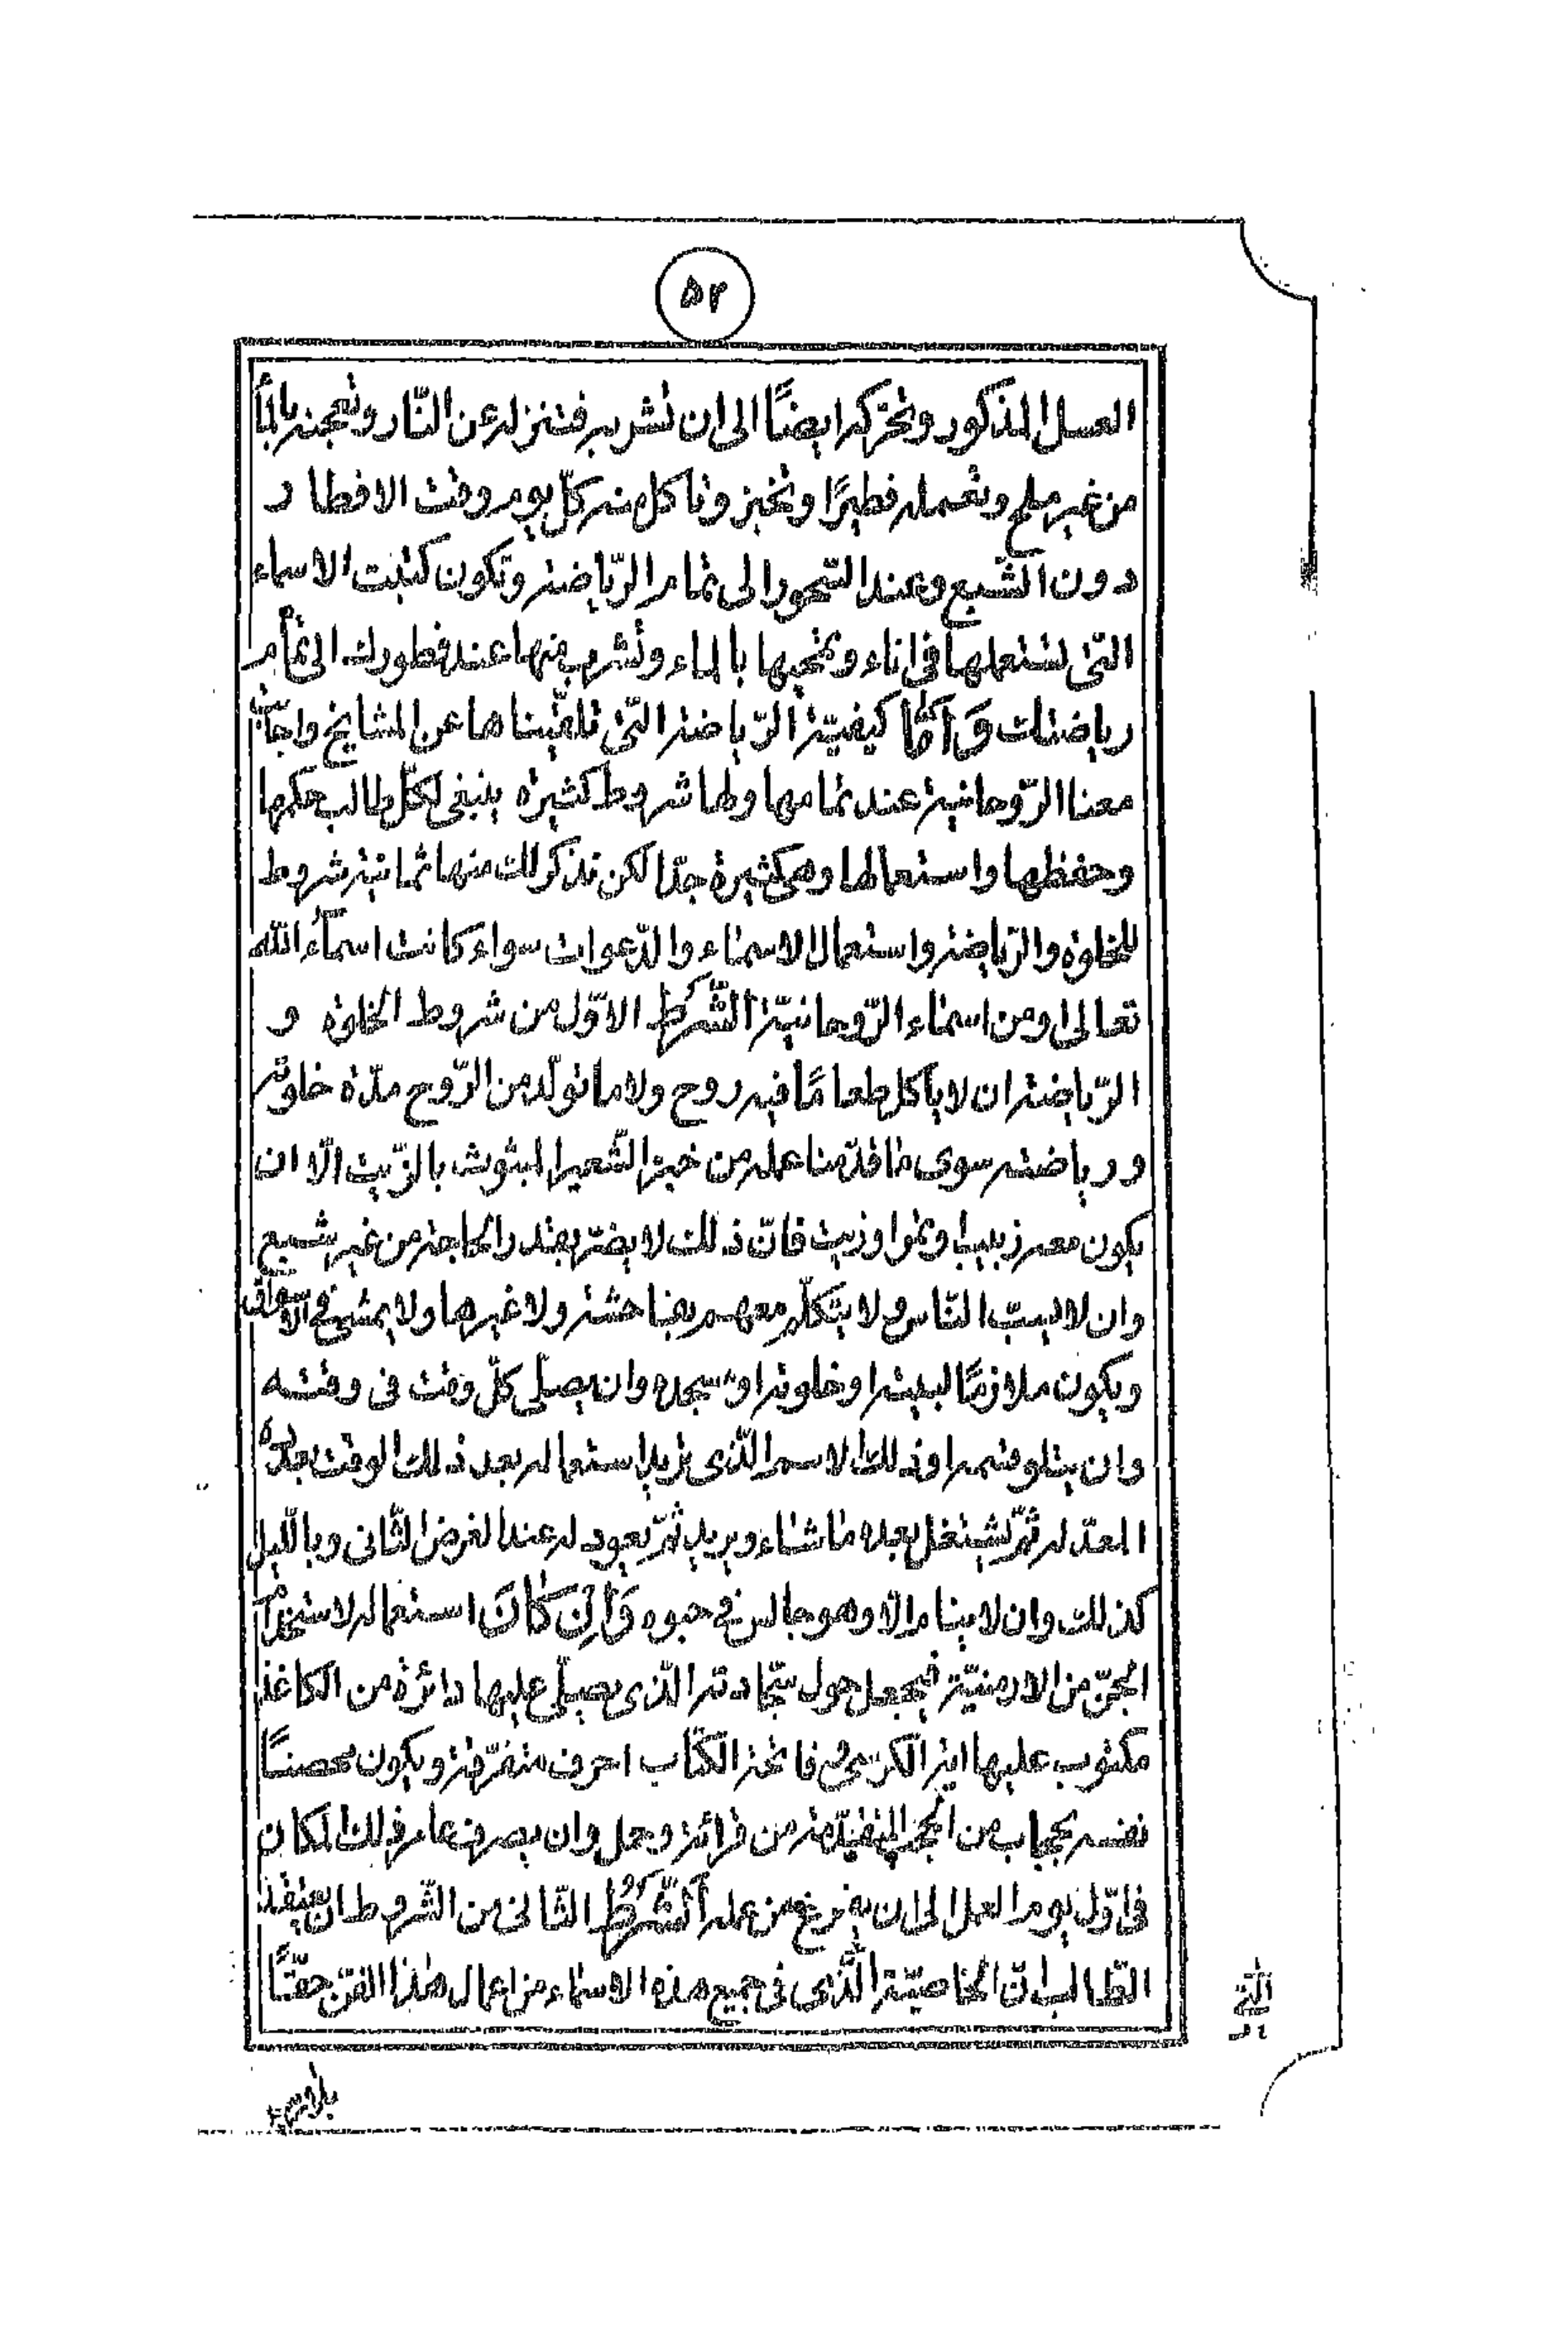 ۵۲
العسل المذكور وتحرّكه ايضًا الى ان تشربه فتنزله عن النّار وتعجنه بالمآ
من غير ملح وتعمله فطيرًا وتخبز وتاكل منه كلّ يوم وقت الافطار
دون الشّبع وعند السّحور الى تمام الرّياضة وتكون كتبت الاسماء
التى تستعملها فى اناء وتمحيها بالماء وتشرب منها عند فطورك الى تمام
رياضتك وَاَمّا كيفيّة الرّياضة التى تلقّيناها عن المشايخ
معنا الرّوحانية عند تمامها ولها شروط كثيرة ينبغى لكلّ طالب حكمها
وحفظها واستعمالها وهى كثيرة جدّا لكن نذكر لك منها ثمانية شروط
للخلوة والرّياضة واستعمال الاسماء والدّعوات سواء كانت اسمآء الله
تعالى او من اسماء الرّوحانيّة اَلشَّرطُ الاوّل من شروط الخلوة و
الرّياضة ان لا ياكل طعامًا فيه روح ولا ما تولّد من الرّوح مدّة خلوته
ورياضته سوى ما قدّمنا عمله من خبز الشّعير المبثوث بالزّيت الّا ان
يكون معه زبيبا وتمرا وزيت فانّ ذلك لا يضرّ بقدر الحاجة من غير شبع
وان لا يسبّ النّاس ولا يتكلّم معهم بفاحشة ولا غيرها ولا يمشى فى الاسواق
ويكون ملازمًا لبيته او خلوته او مسجده وان يصلّى كلّ وقت فى وقته
وان يتلو قسمه او ذلك الاسم الّذى يريد استعماله بعد ذلك الوقت
المعدّ له ثمّ يشتغل بعده ما شاء ويريد ثمّ يعود له عند الفرض الثّانى وبالّليل
كذلك وان لا ينام الّا وهو جالس فى حبوه وَاِن كَانَ استعماله لاستخدام
الجنّ من الارمنيّة فيجعل حول سجّادته الّذى يصلّى عليها دائرة من الكاغذ
مكتوب عليها اية الكرسى وفاتحة الكتاب احرف متفرّقة ويكون محصنًا
نفسه بحجاب من الحجب المتقدّمة من قرائة وحمل وان يصرف عامر ذلك المكان
فى اوّل يوم العمل الى ان يفرغ من عمله اَلشَّرطُ الثّانى من الشّروط ان يعتقد
الطّالب انّ الخاصيّة الّذى فى جميع هذه الاسماء من اعمال هذا الفنّ حقّا